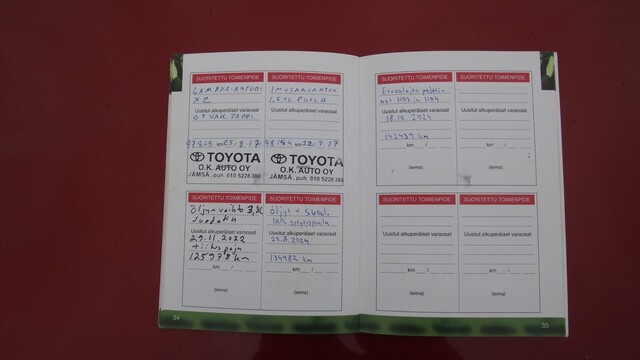 SUORITETTU TOIMENPIDE
LAMBDA-ANTURI
X2
Uusitut alkuperäiset varaosat
ÖT VAIHT. TAPPI
97808 km 25.8.17
TOYOTA
O.K. AUTO OY
JÄMSÄ, puh. 010 5228 388
SUORITETTU TOIMENPIDE
1 MUSARUNTOR
Uusitut alkuperäiset varaosat
km 22.9.17
TOYOTA
O.K. AUTO OY
JÄMSÄ, puh. 010 5228 388
SUORITETTU TOIMENPIDE
Öljyn vaihto
suodatin
Uusitut alkuperäiset varaosat
29.11.2022
125978 km
km
(leima)
SUORITETTU TOIMENPIDE
Öljyt + suod.
Uusitut alkuperäiset varaosat
29.8.2024
134982 km
km
(leima)
34
SUORITETTU TOIMENPIDE
Etuvalojen polttim
Uusitut alkuperäiset varaosat
18.10.2024
142439 km
km
(leima)
SUORITETTU TOIMENPIDE
Uusitut alkuperäiset varaosat
km
(leima)
SUORITETTU TOIMENPIDE
Uusitut alkuperäiset varaosat
km
(leima)
SUORITETTU TOIMENPIDE
Uusitut alkuperäiset varaosat
km
(leima)
35